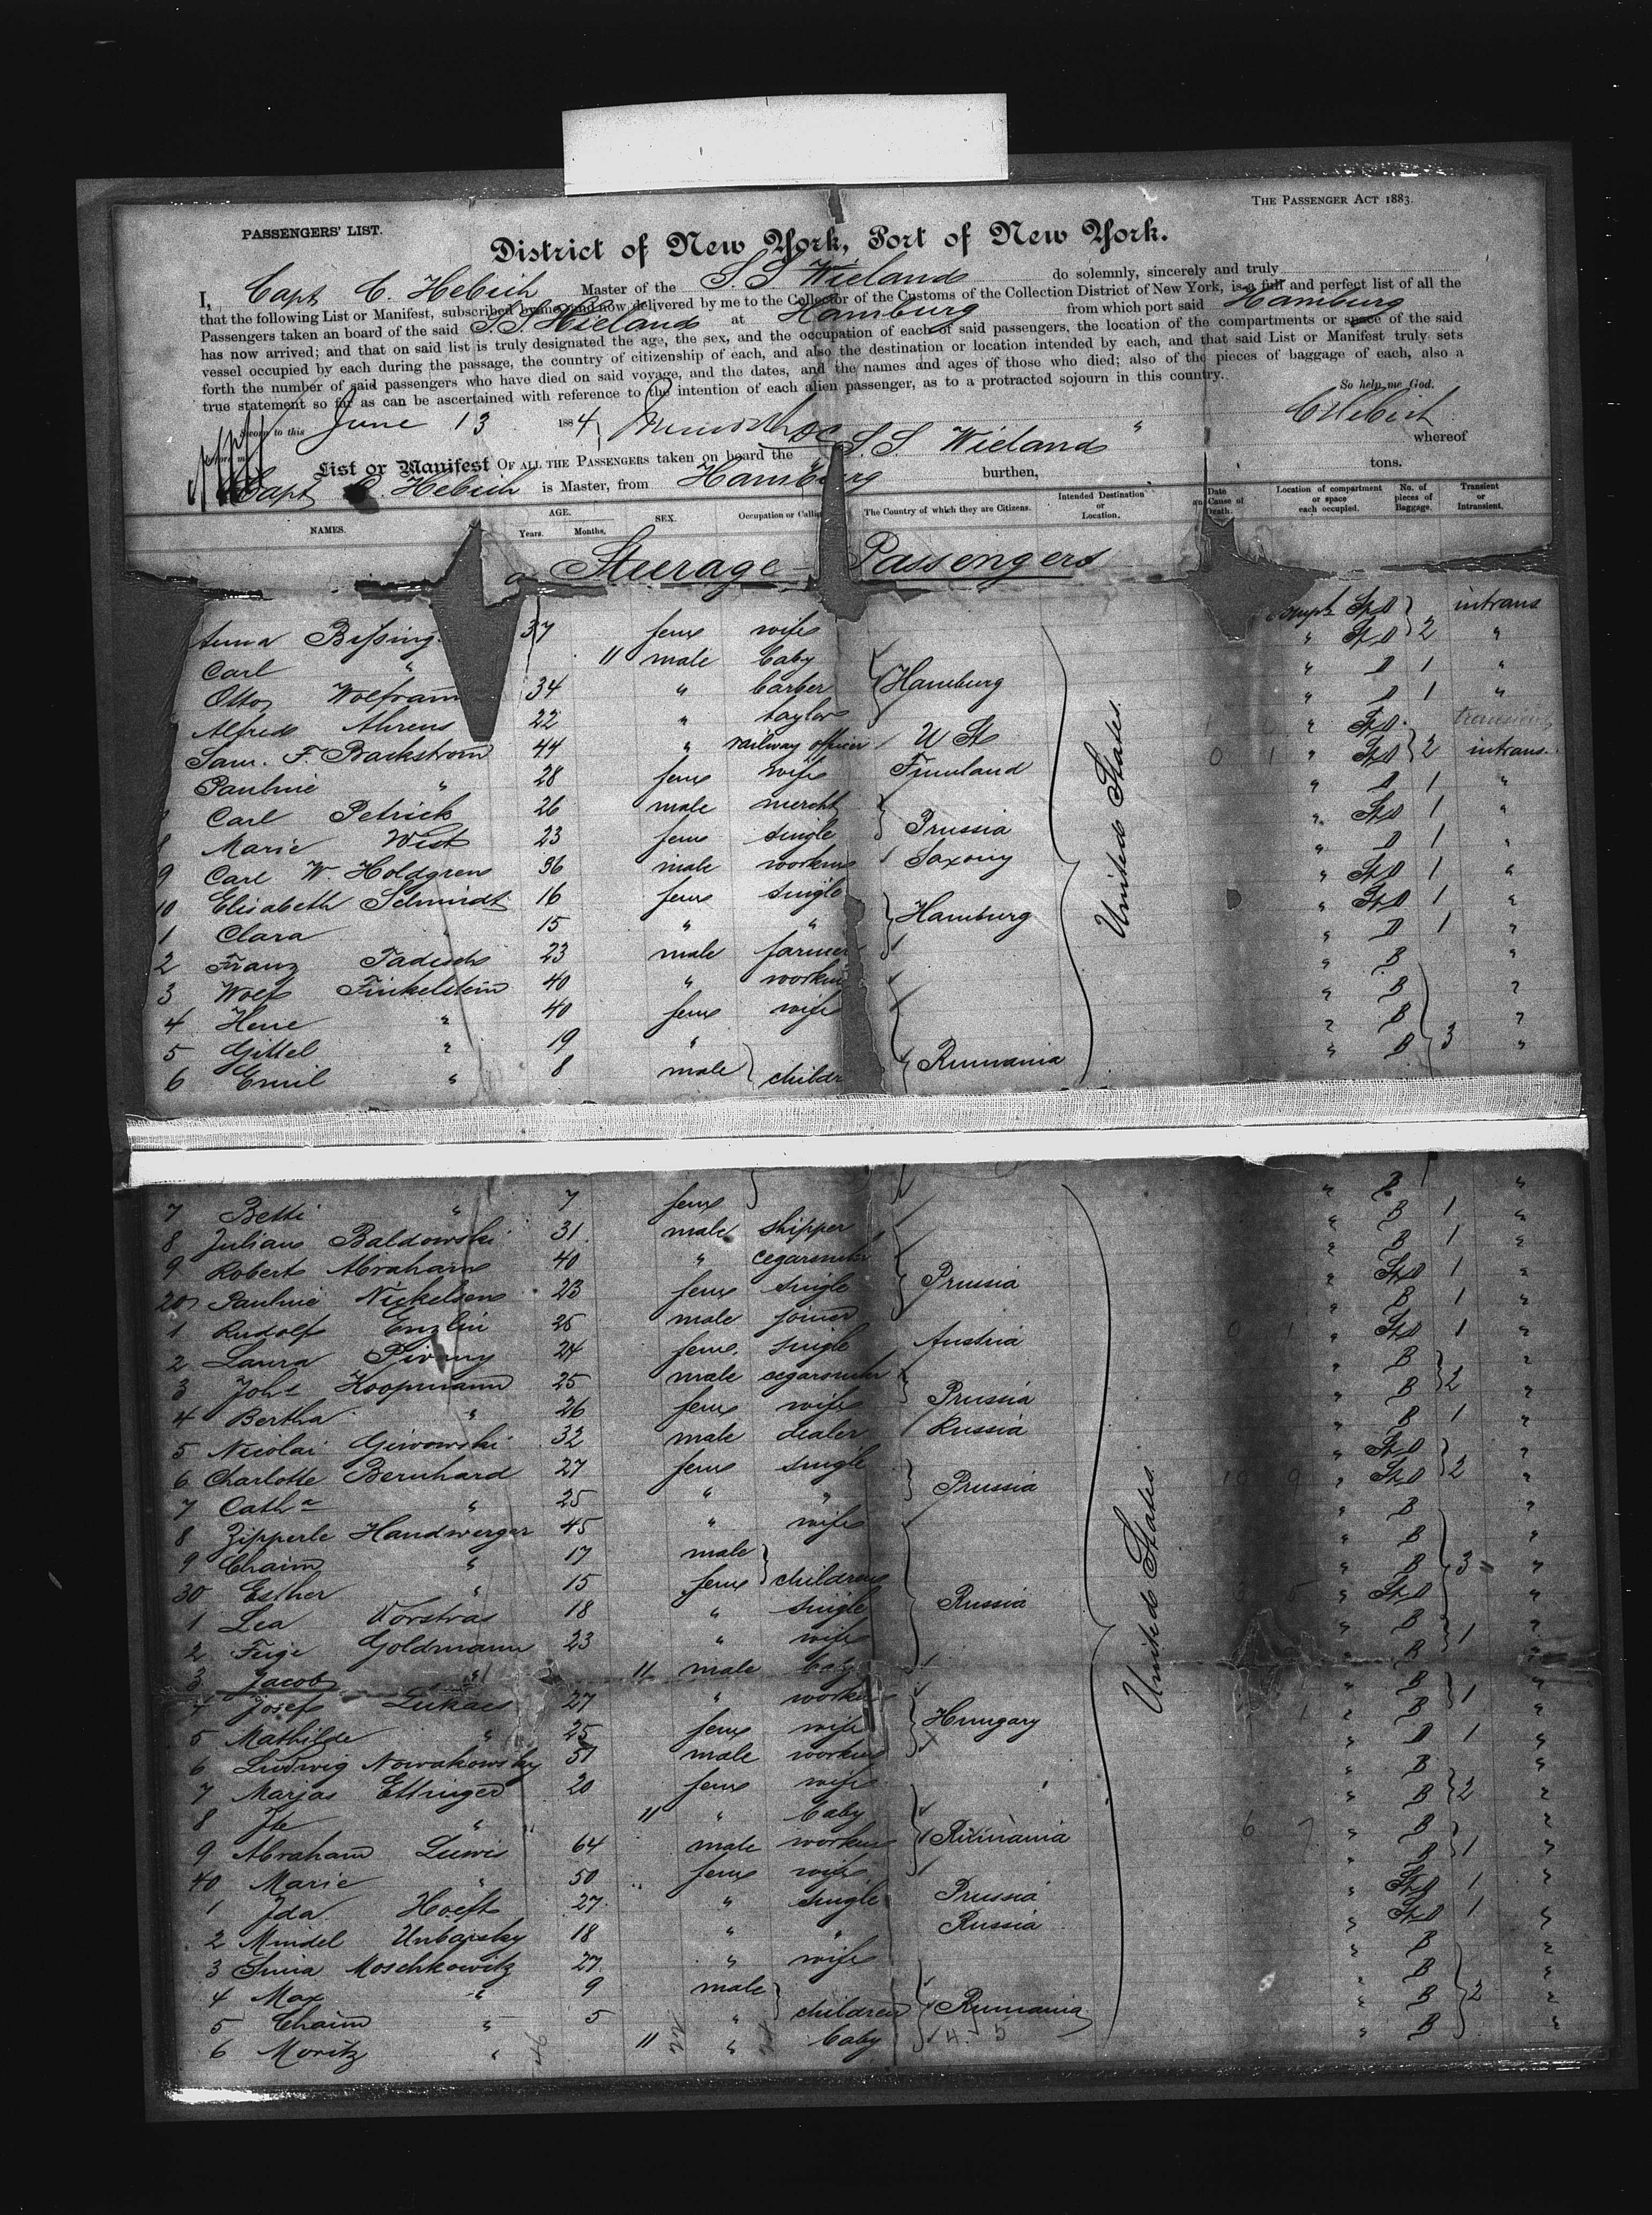 THE PASSENGER ACT 1883.
PASSENGERS' LIST.
District of New York, Port of New York.
I, Capt C. Hebich Master of the S. S. Wieland do solemnly, sincerely and truly
that the following List or Manifest, subscribed by me, and now delivered by me to the Collector of the Customs of the Collection District of New York, is a full and perfect list of all the
Passengers taken on board of the said S. S. Wieland at Hamburg from which port said Hamburg
has now arrived; and that on said list is truly designated the age, the sex, and the occupation of each of said passengers, the location of the compartments or space of the said
vessel occupied by each during the passage, the country of citizenship of each, and also the destination or location intended by each, and that said List or Manifest truly sets
forth the number of said passengers who have died on said voyage, and the dates, and the names and ages of those who died; also of the pieces of baggage of each, also a
true statement so far as can be ascertained with reference to the intention of each alien passenger, as to a protracted sojourn in this country.
So help me God.
Sworn to this June 13 1884 C Hebich
before me
List or Manifest OF ALL THE PASSENGERS taken on board the S. S. Wieland " whereof
Capt C. Hebich is Master, from Hamburg burthen, tons.
NAMES. AGE. Years. Months. SEX. Occupation or Calling The Country of which they are Citizens. Intended Destination or Location. Date and Cause of Death. Location of compartment or space each occupied. No. of pieces of Baggage. Transient or Intransient.
Steerage Passengers
Anna Bissing 37 fem wife St D intrans
Carl " 11 male baby " St D 2 "
Otto Wolfram 34 " barber Hamburg " D 1 "
Alfred Ahrens 22 " taylor " D 1 "
Sam. F. Backstrom 44 " railway officer U St " St D transient
Pauline " 28 fem wife Finnland 0 1 " St D 2 intrans.
Carl Petrick 26 male mercht " D 1 "
8 Marie Wist 23 fem single Prussia " St D 1 "
9 Carl W. Holdgren 36 male workm Saxony " D 1 "
10 Elisabeth Schmidt 16 fem single " St D 1 "
1 Clara " 15 " " Hamburg " St D 1 "
2 Franz Tadisch 23 male farmer " D 1 "
3 Wolf Finkelstein 40 " workm " B "
4 Hene " 40 fem wife " B "
5 Gittel " 19 " " B 3 "
6 Emil " 8 male childr Rumania " B "
United States.
7 Betti " 7 fem " B "
8 Julians Baldowski 31 male shipper " B 1 "
9 Robert Abraham 40 " cegarmkr " B 1 "
20 Pauline Nickelsen 23 fem single Prussia " St D 1 "
1 Rudolf Enzlin 25 male joiner " B 1 "
2 Laura 24 fem. single Austria 0 1 " St D 1 "
3 Johs Koopmann 25 male cegarmkr " B "
4 Bertha " 26 fem wife Prussia " B 2 "
5 Nicolai Giwowski 32 male dealer Russia " B 1 "
6 Charlotte Bernhard 27 fem single " St D "
7 Catha " 25 " " Prussia 10 9 " St D 2 "
8 Zipperle Handwerger 45 " wife " B "
9 Chaim " 17 male " B "
30 Esther " 15 fem children " B 3 "
1 Lea Vorstras 18 " single Russia " St D "
2 Feige Goldmann 23 " wife " B "
3 Jacob " 11 male baby " B 1 "
4 Josef Lukacs 27 " workm " B "
5 Mathilde " 25 fem wife Hungary " B 1 "
6 Ludwig Nowakowsky 51 male workm " D 1 "
7 Marjas Ettinger 20 fem wife " B "
8 Ite " 11 " baby " B 2 "
9 Abraham Luwis 64 male workm Rumania 6 7 " B "
40 Marie " 50 fem wife " B 1 "
1 Ida Hoeft 27 " single Prussia " St D 1 "
2 Mindel Unbapsky 18 " " Russia " St D 1 "
3 Smia Moschkowitz 27 " wife " B "
4 Max " 9 male " B "
5 Chaim " 5 " children Rumania " B 2 "
6 Moritz " 11 " baby 4. 5 " B "
United States.